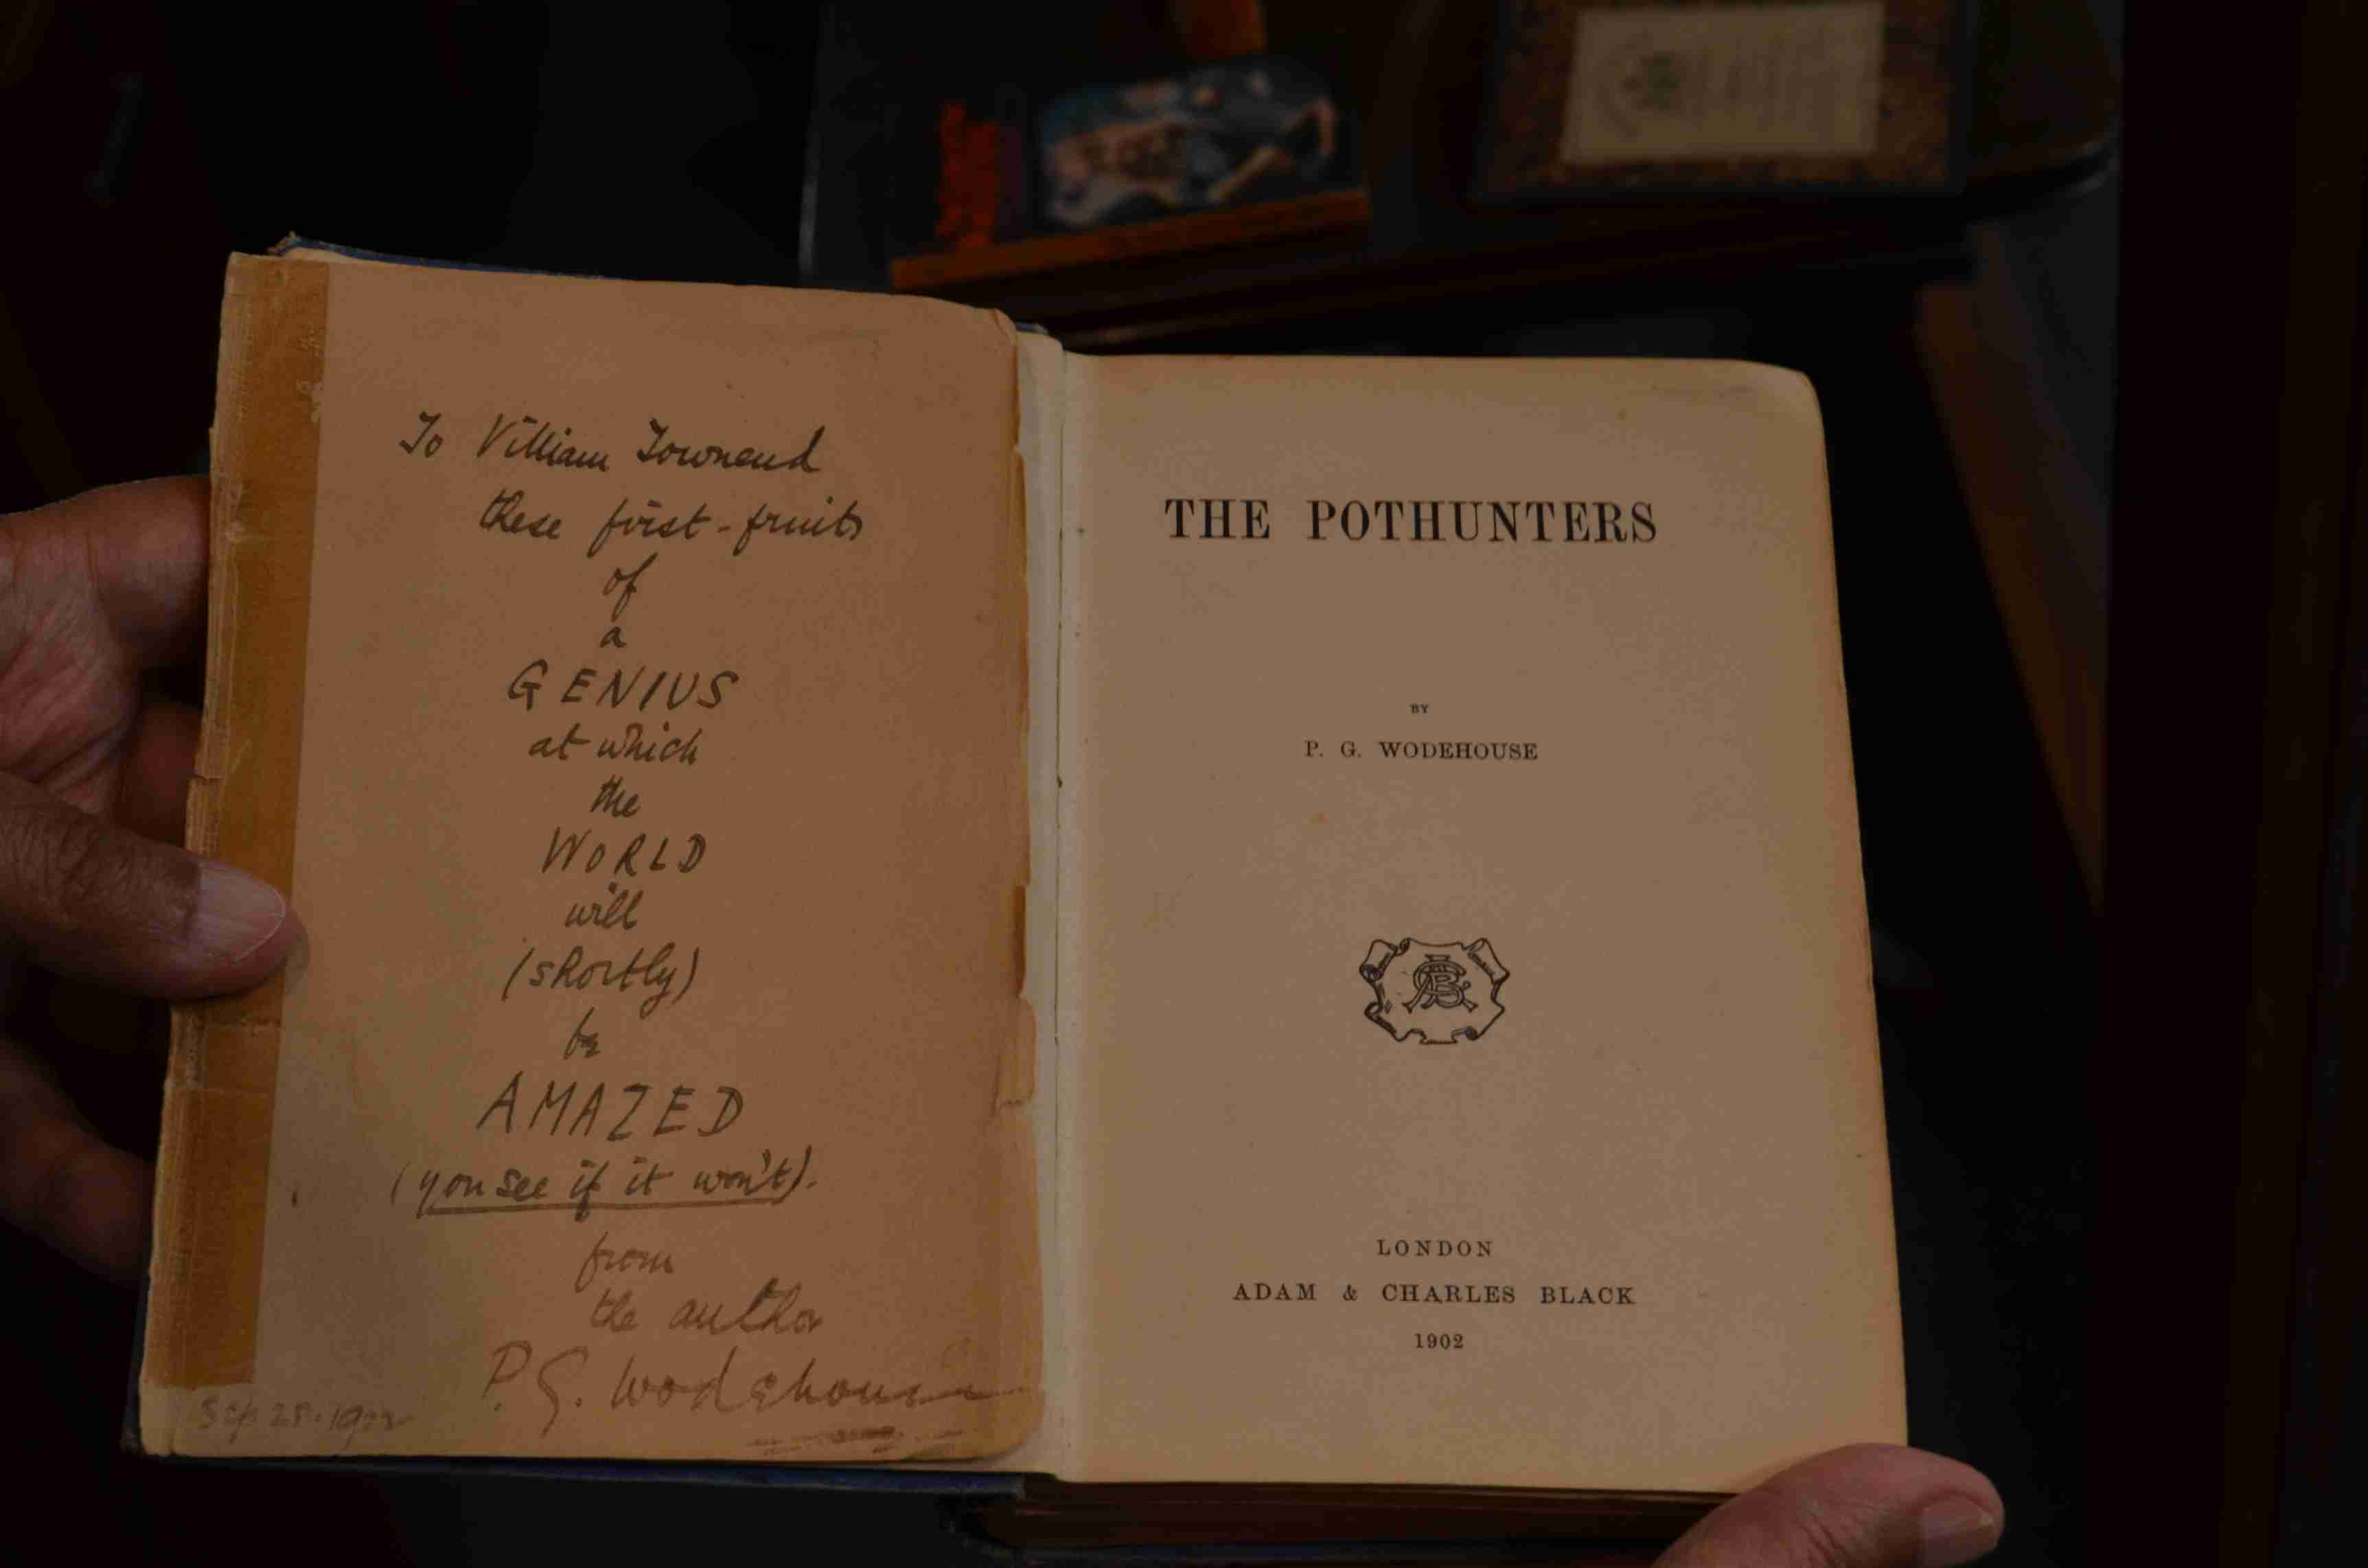 To Villiam Townend
these first-fruits
of
a
GENIUS
at which
the
WORLD
will
(shortly)
be
AMAZED
(you see if it won't).
from
the author
P. G. Wodehouse
Sep 28. 1902
THE POTHUNTERS
BY
P. G. WODEHOUSE
LONDON
ADAM & CHARLES BLACK
1902